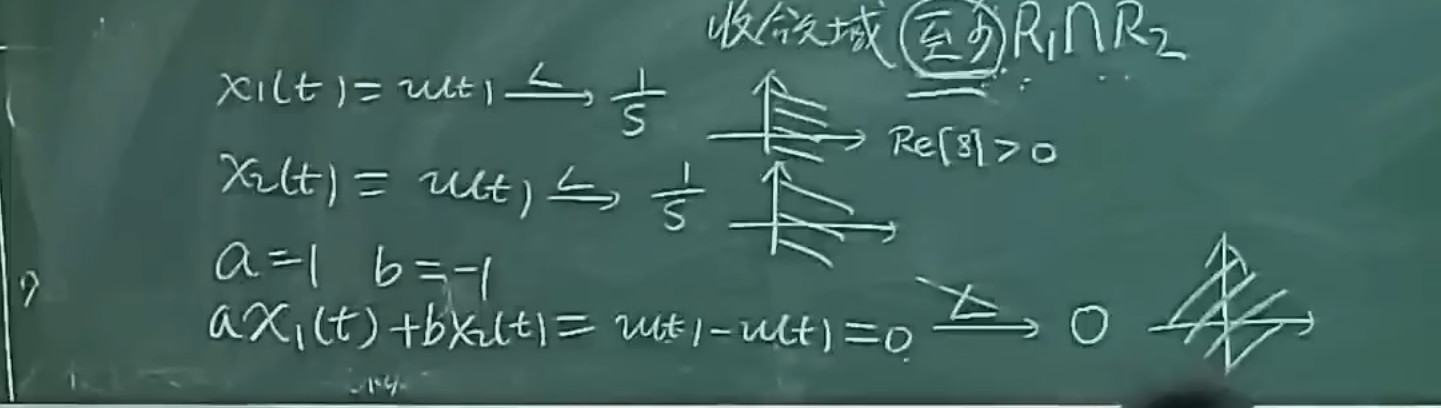 收敛域 至少 R₁∩R₂
x₁(t) = u(t) —L→ 1/S Re[s] > 0
x₂(t) = u(t) —L→ 1/S
a=1 b=-1
ax₁(t)+bx₂(t) = u(t)-u(t)=0 —L→ 0